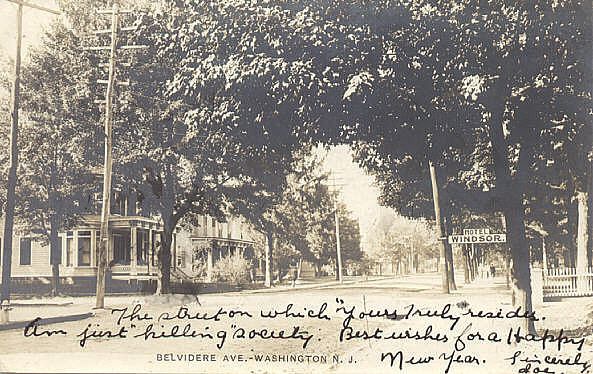 HOTEL
WINDSOR.
The street on which "Yours Truly resides.
Am just "killing" society. Best wishes for a Happy
New Year. Sincerely
BELVIDERE AVE.-WASHINGTON N. J.